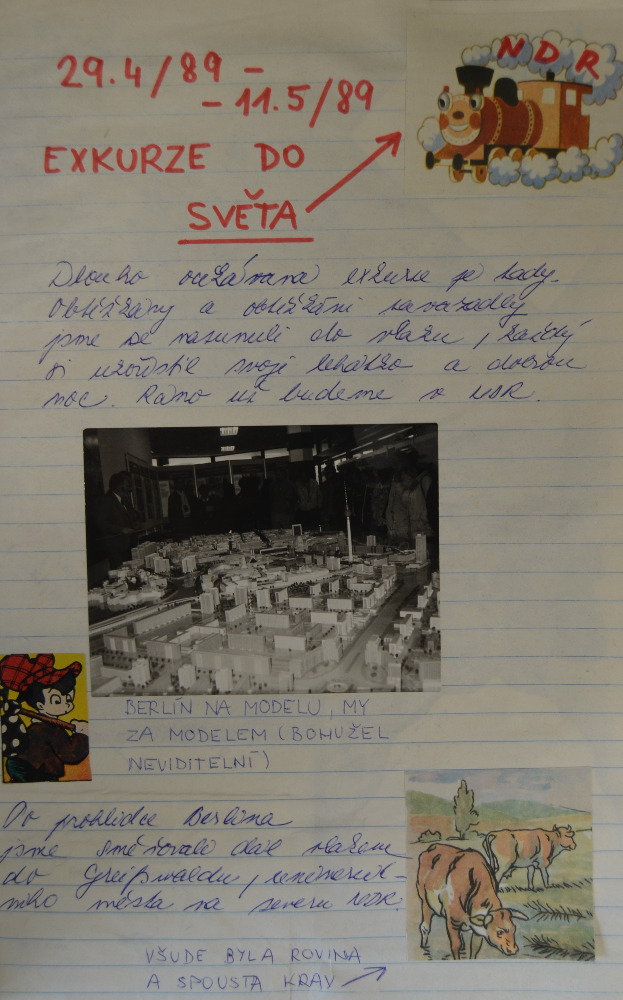 29.4/89 -
- 11.5/89
NDR
EXKURZE DO
SVĚTA
Dlouho očekávaná exkurze je tady.
Obtěžkány a obtěžkáni zavazadly
jsme se nasunuli do vlaku, každý
si urovnal svoje lehátko a dobrou
noc. Ráno už budeme v NDR.
BERLÍN NA MODELU, MY
ZA MODELEM (BOHUŽEL
NEVIDITELNÍ)
Po prohlídce Berlína
jsme směřovali dál vlakem
do Greifswaldu, univerzit-
ního města na severu NDR.
VŠUDE BYLA ROVINA
A SPOUSTA KRAV